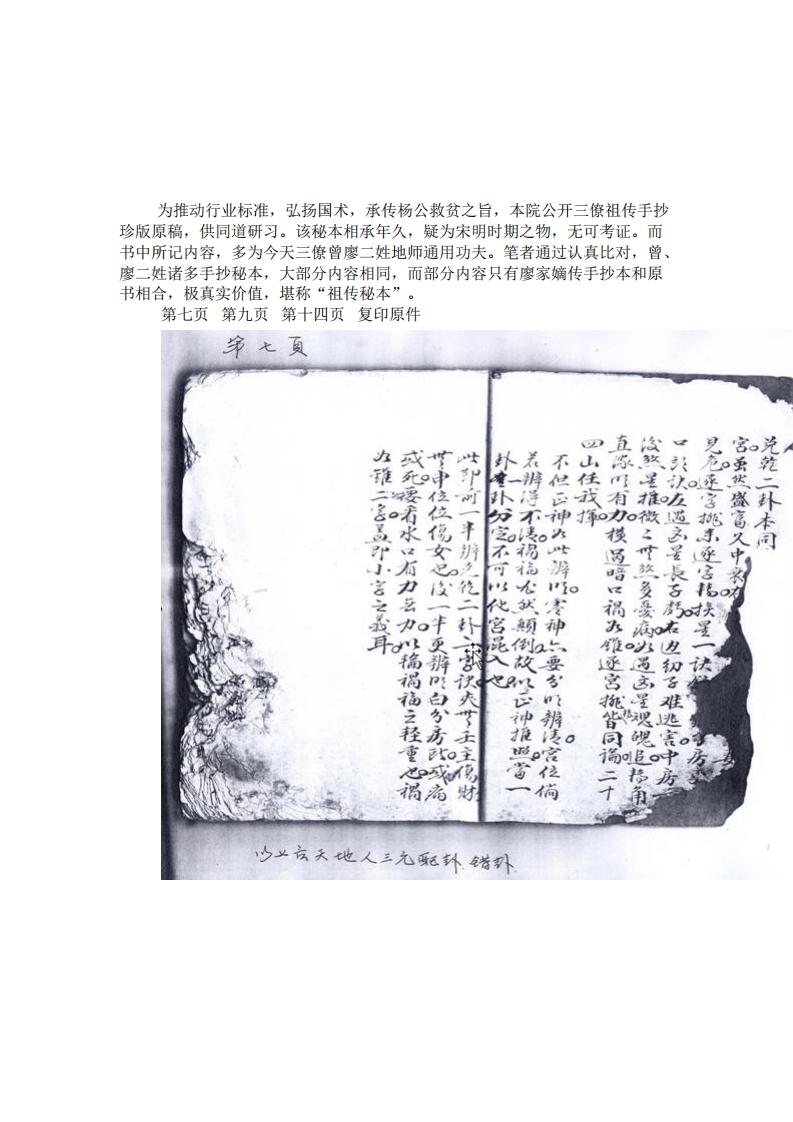 为推动行业标准，弘扬国术，承传杨公救贫之旨，本院公开三僚祖传手抄
珍版原稿，供同道研习。该秘本相承年久，疑为宋明时期之物，无可考证。而
书中所记内容，多为今天三僚曾廖二姓地师通用功夫。笔者通过认真比对，曾、
廖二姓诸多手抄秘本，大部分内容相同，而部分内容只有廖家嫡传手抄本和原
书相合，极真实价值，堪称“祖传秘本”。
第七页 第九页 第十四页 复印原件
第七頁
兑乾二卦本同
宫。虽然盛富久中
見危。逐字挑来逐字轉。挨星一訣
口訣。左遇凶星長子 。右边幼子难逃害。中房
没煞星推微之 煞多憂病。如遇凶星魂魄追。橋角
直 以有力。横過暗口禍如錐。逐宫挑皆同論。二十
四山任我揮。
不但正神如此辨以。零神六要分以辨清宫位。倘
若辨得不清。禍福尤然顛倒。故以正神推照。當一
卦 卦分定。不可以他宫混入也。
此即前一半辨 乾二卦 字訣。夾 壬主傷財
中位位傷女也。後一半更辨以白分房 。或病
或死。要看水口有力無力。以稱禍福之轻重也。禍
如錐二字盖即小字之義耳。
以上言天地人三元配卦.错卦.